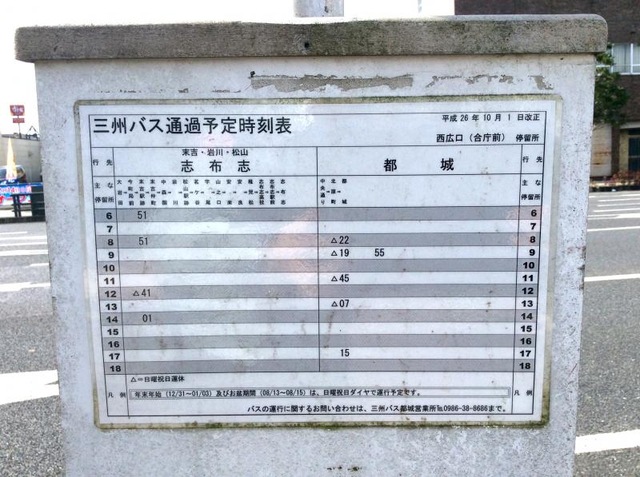 三州バス通過予定時刻表
平成26年10月1日改正
西広口（合庁前）停留所
行先
末吉・岩川・松山
志布志
都城
行先
主な停留所
主な停留所
6 51 6
7 7
8 51 △22 8
9 △19 55 9
10 10
11 △45 11
12 △41 12
13 △07 13
14 01 14
15 15
16 16
17 15 17
18 18
凡例
△＝日曜祝日運休
年末年始（12/31～01/03）及びお盆期間（08/13～08/15）は、日曜祝日ダイヤで運行予定です。
凡例
バスの運行に関するお問い合わせは、三州バス都城営業所℡0986-38-8686まで。